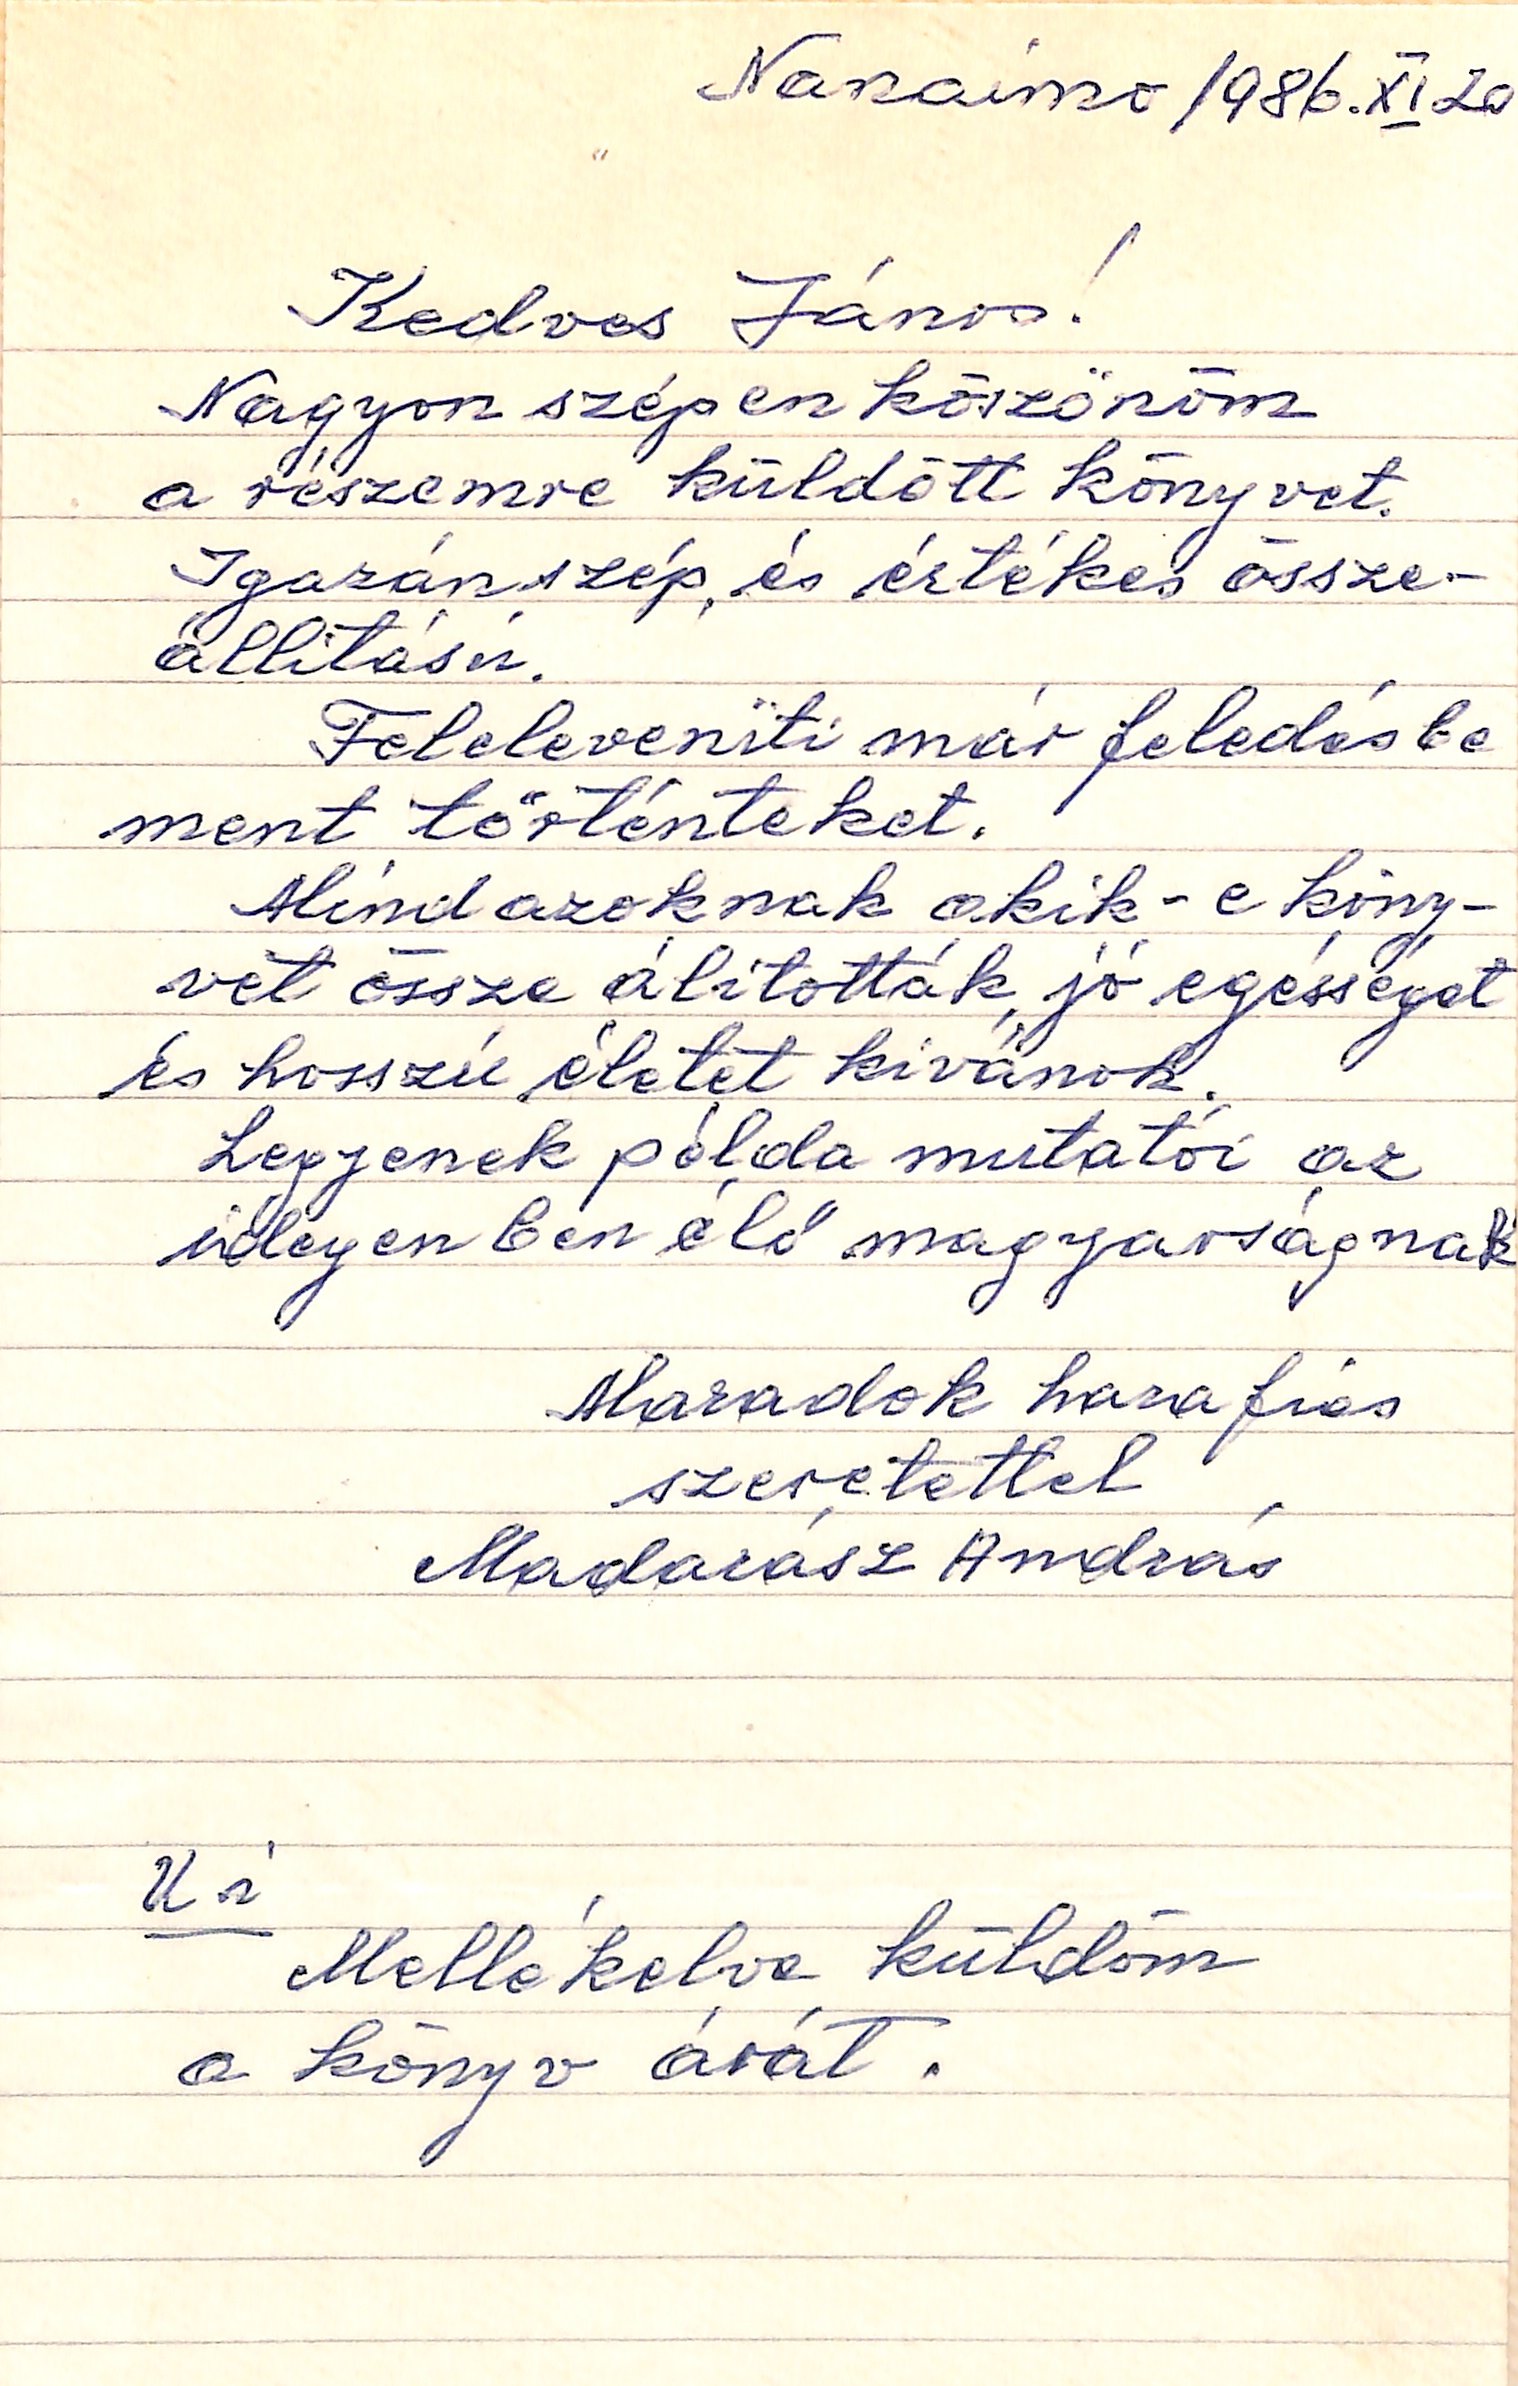 Nanaimo 1986. XI 20
Kedves János!
Nagyon szépen köszönöm
a részemre küldött könyvet.
Igazán szép, és értékes össze-
állitásu.
Feleleveniti már feledésbe
ment történteket.
Mind azoknak akik - e köny-
vet össze álitották, jó egésséget
és hosszú életet kivánok.
Legyenek példa mutatói az
idegenben élő magyarságnak
Maradok hazafias
szeretettel
Madarász András
Ui
Mellékelve küldöm
a könyv árát.